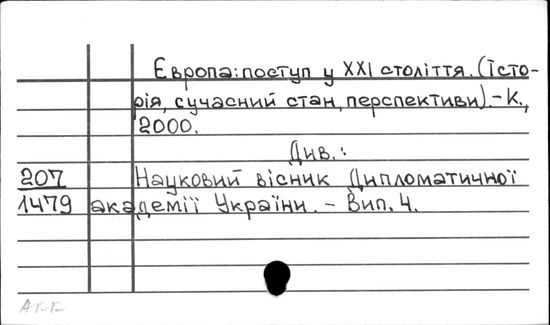 Європа: поступ у XXI століття. (Істо-
рія, сучасний стан, перспективи). - К.,
2000.
Див.:
207 Науковий вісник Дипломатичної
1479 академії України. - Вип. 4.